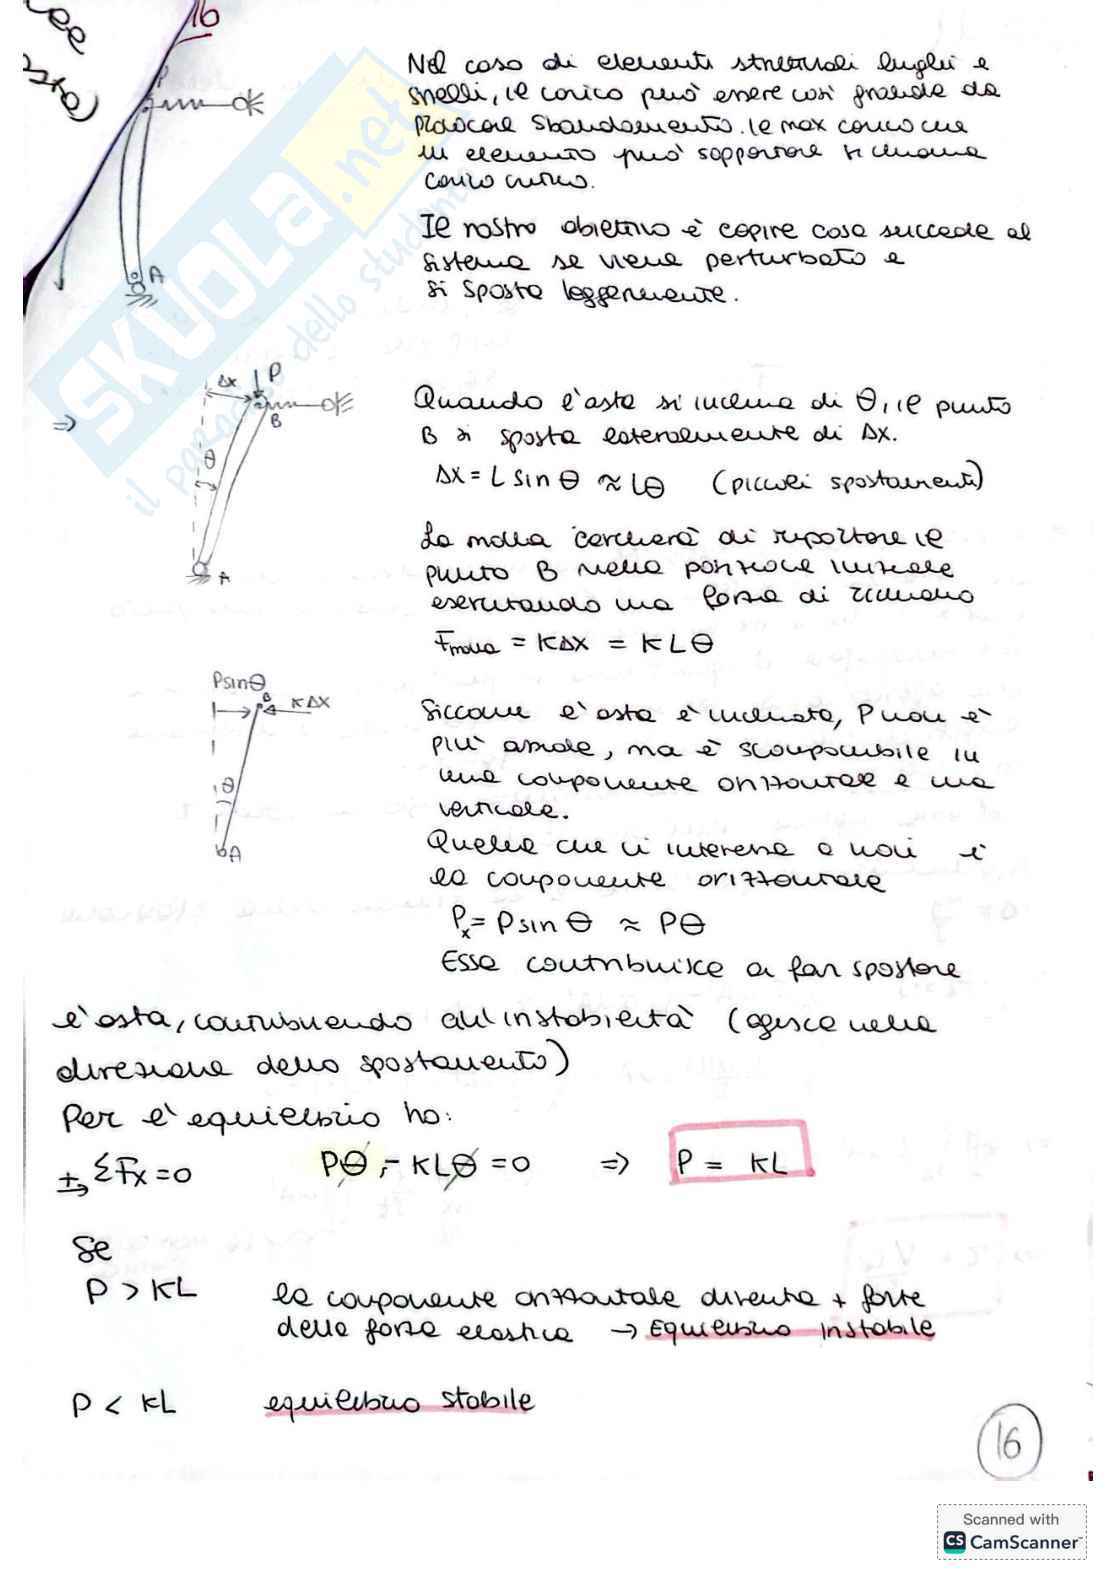 16
P
A
Nel caso di elementi strutturali lunghi e
snelli, il carico può essere così grande da
provocare sbandamento. Il max carico che
un elemento può sopportare si chiama
carico critico.
Il nostro obiettivo è capire cosa succede al
sistema se viene perturbato e
si sposta leggermente.
⇒
Δx P
B
θ
A
Quando l'asta si inclina di θ, il punto
B si sposta lateralmente di Δx.
Δx = L sin θ ≈ Lθ (piccoli spostamenti)
La molla cercherà di riportare il
punto B nella posizione iniziale
esercitando una forza di richiamo
Fmolla = KΔx = KLθ
Psinθ
B KΔx
θ
A
Siccome l'asta è inclinata, P non è
più assiale, ma è scomponibile in
una componente orizzontale e una
verticale.
Quella che ci interessa a noi è
la componente orizzontale
Px = P sin θ ≈ Pθ
Essa contribuisce a far spostare
l'asta, contribuendo all'instabilità (agisce nella
direzione dello spostamento)
Per l'equilibrio ho:
+→ ΣFx = 0 Pθ - KLθ = 0 ⇒ P = KL
Se
P > KL la componente orizzontale diventa + forte
della forza elastica → Equilibrio instabile
P < KL equilibrio stabile
16
SKUOLA.net
il paradiso dello studente
Scanned with
CS CamScanner